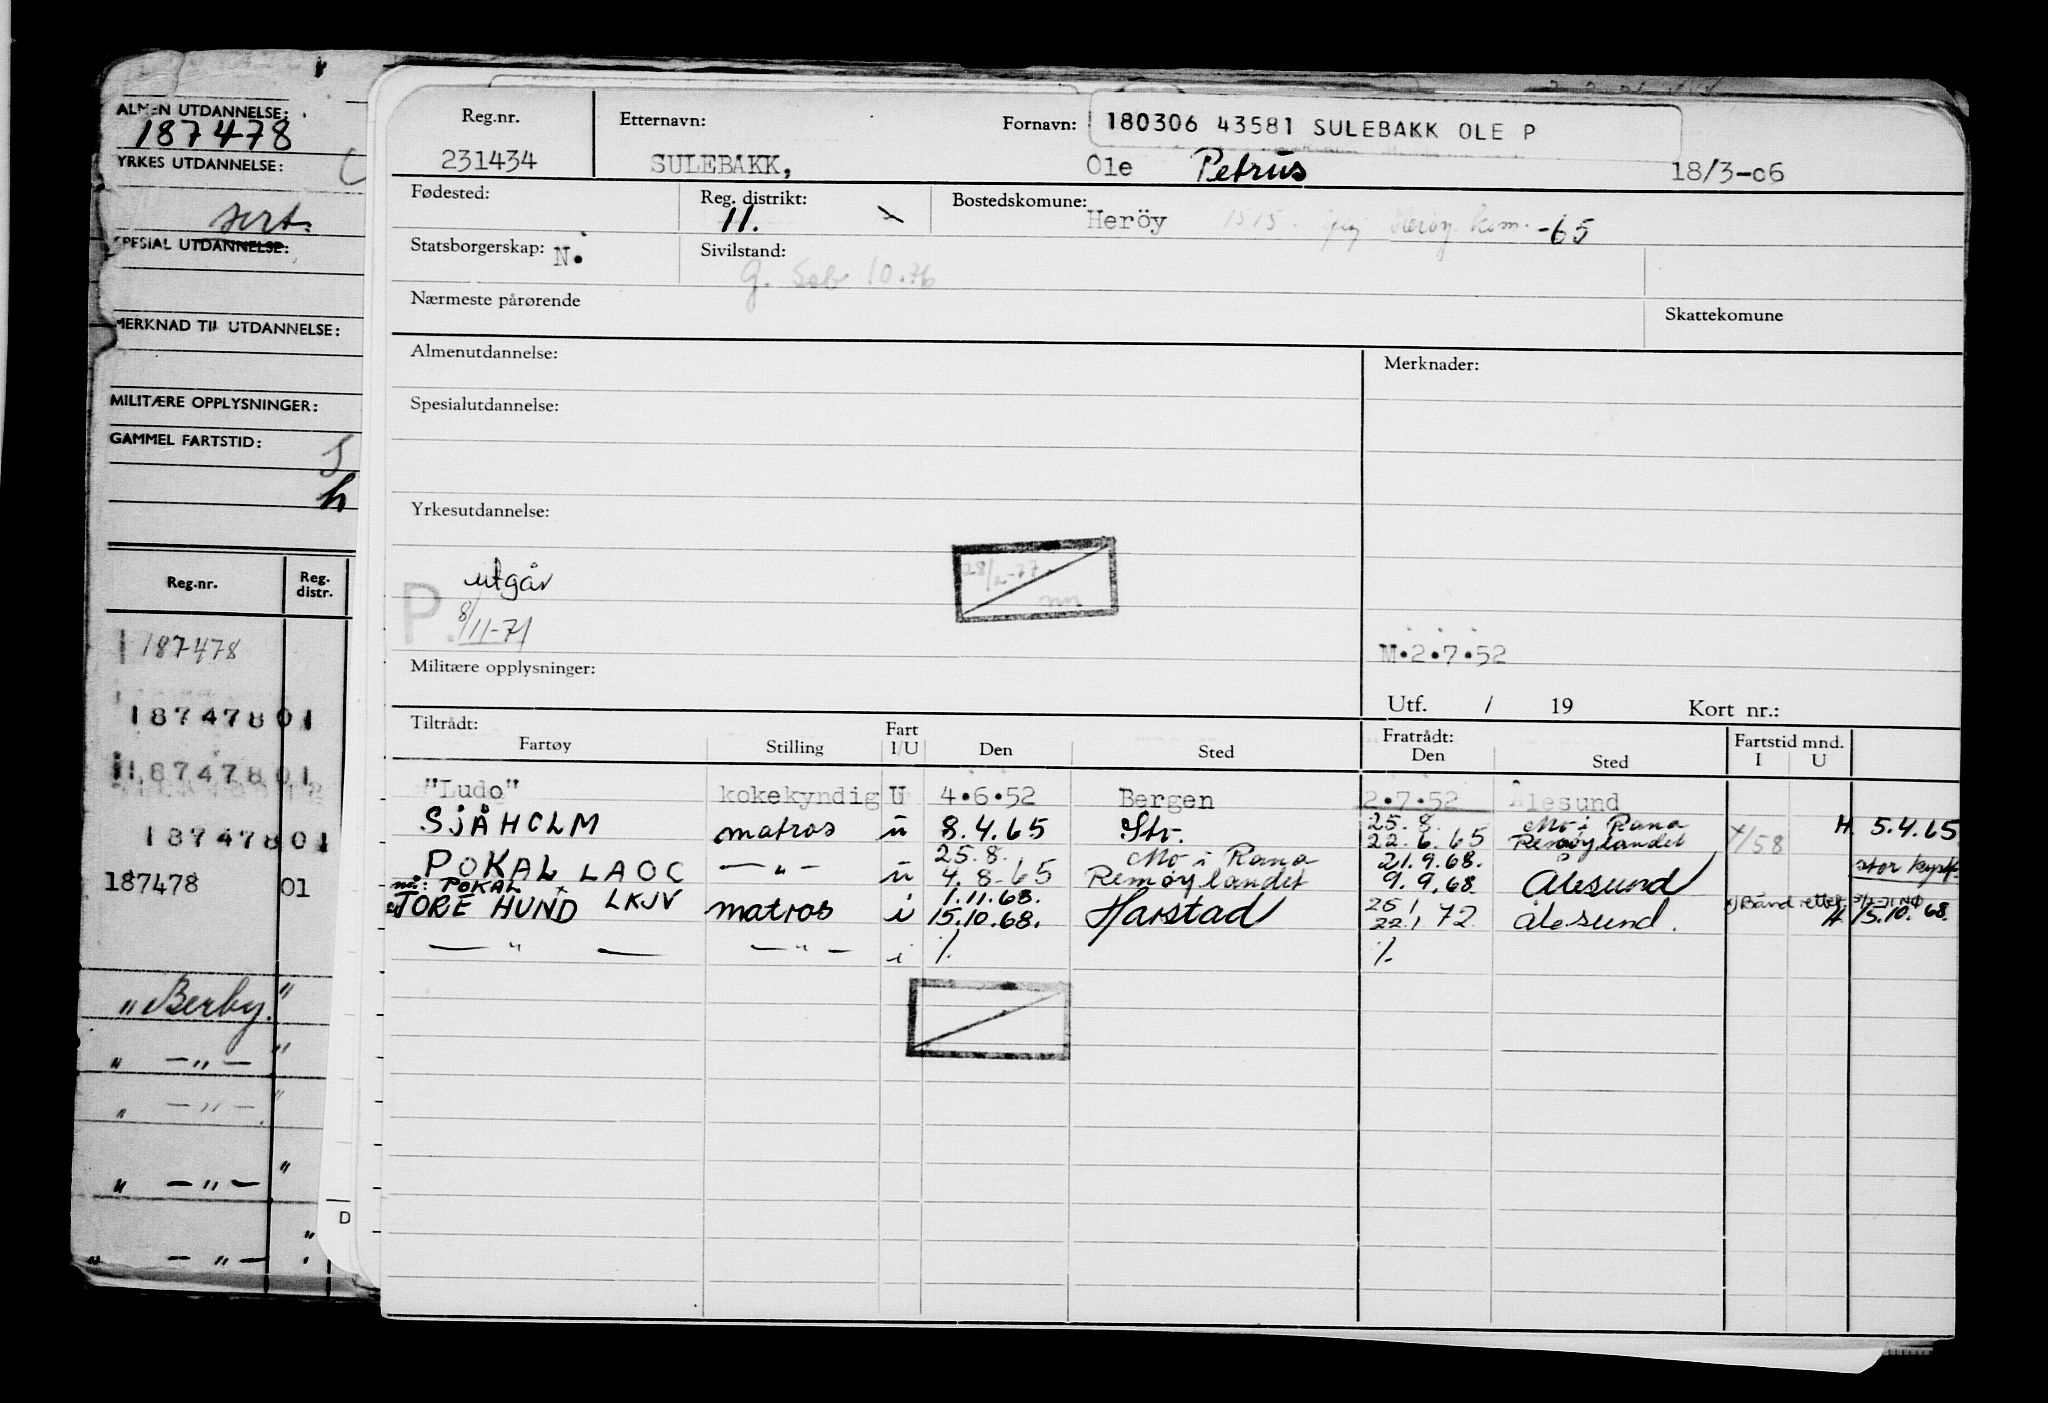 ALMEN UTDANNELSE:
187478
YRKES UTDANNELSE:
sert.
SPESIAL UTDANNELSE:
MERKNAD TIL UTDANNELSE:
MILITÆRE OPPLYSNINGER:
GAMMEL FARTSTID:
h
Reg.nr. Reg. distr.
187478
187478 01
187478 01
187478 01
187478 01
"Berby."
" — " — "
" — " — "
" — " — "
" — " — "
D
Reg.nr. Etternavn: Fornavn: 180306 43581 SULEBAKK OLE P
231434 SULEBAKK, Ole Petrus 18/3-06
Fødested: Reg. distrikt: 11. Bostedskomune: Heröy 1515. Herøy kom. -65
Statsborgerskap: N. Sivilstand: g. 10.76
Nærmeste pårørende Skattekomune
Almenutdannelse: Merknader:
Spesialutdannelse:
Yrkesutdannelse:
28/2-77
P. utgår
8/11-71
M.2.7.52
Militære opplysninger:
Utf. / 19 Kort nr.:
Tiltrådt: Fart Fratrådt: Fartstid mnd.
Fartøy Stilling I/U Den Sted Den Sted I U
"Ludo" kokekyndig U 4.6.52 Bergen 2.7.52 Ålesund
SJÅHOLM matros u 8.4.65 Str. 25.8. Mo i Rana H 5.4.65
22.6.65 Remøylandet 4/58
25.8. Mo i Rana 21.9.68.
POKAL LAOC — " — u 4.8.65 Remøylandet 9.9.68 Ålesund
nå: POKAL 1.11.68. 25/
TORE HUND LKJV matros i 15.10.68. Harstad 22/1 72 Ålesund. H. 15.10.68.
— " — — " — i ⁒ ⁒